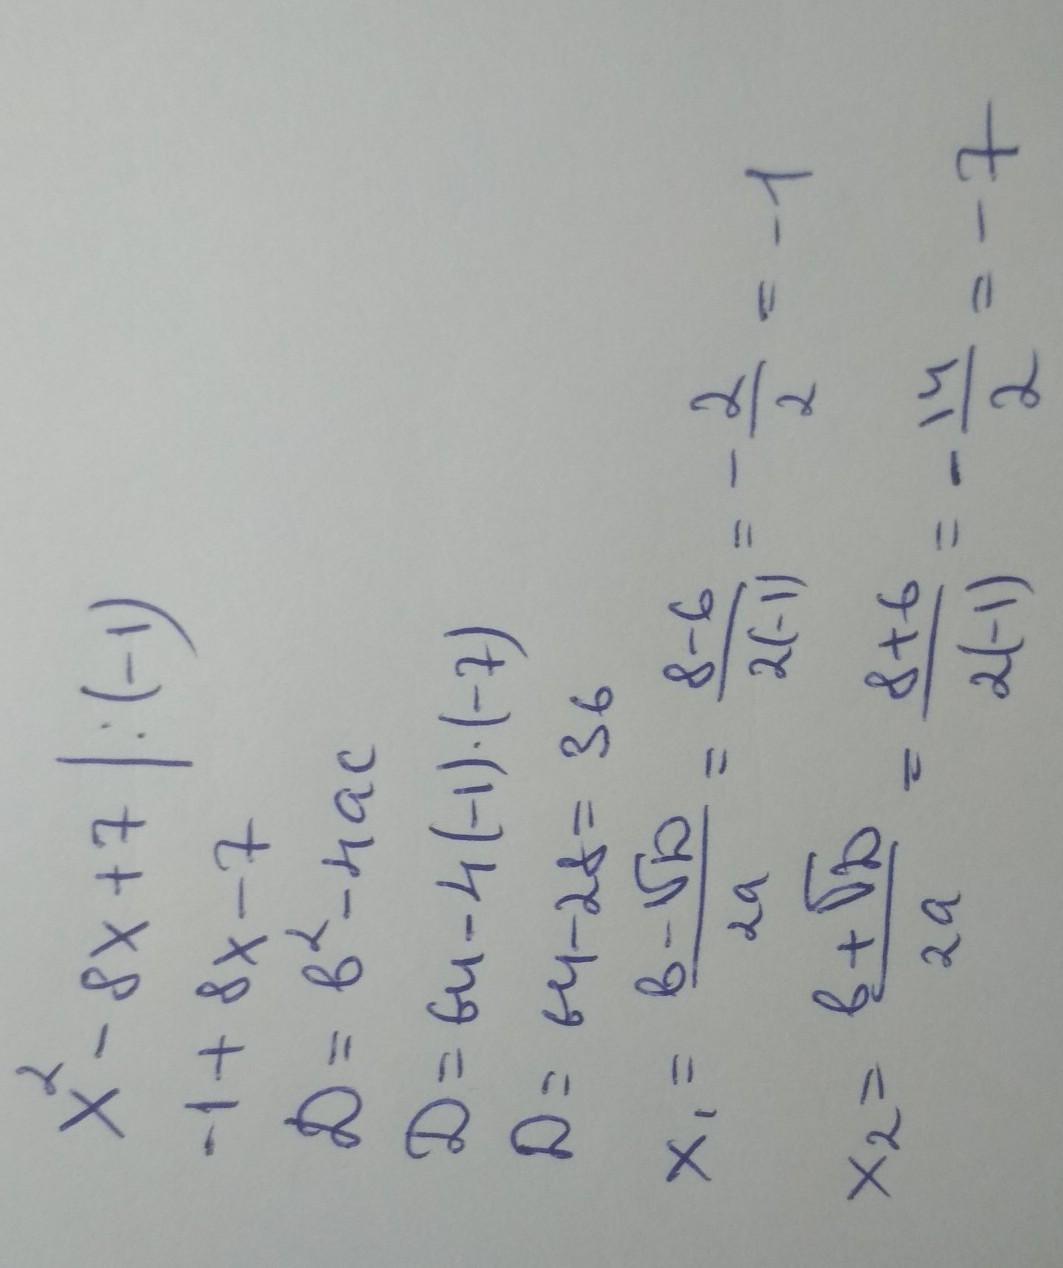 x² - 8x + 7 | : (-1)
-1 + 8x - 7
D = b² - 4ac
D = 64 - 4(-1)·(-7)
D = 64 - 28 = 36
x₁ = (b - √D)/(2a) = (8 - 6)/(2(-1)) = - 2/2 = -1
x₂ = (b + √D)/(2a) = (8 + 6)/(2(-1)) = - 14/2 = -7